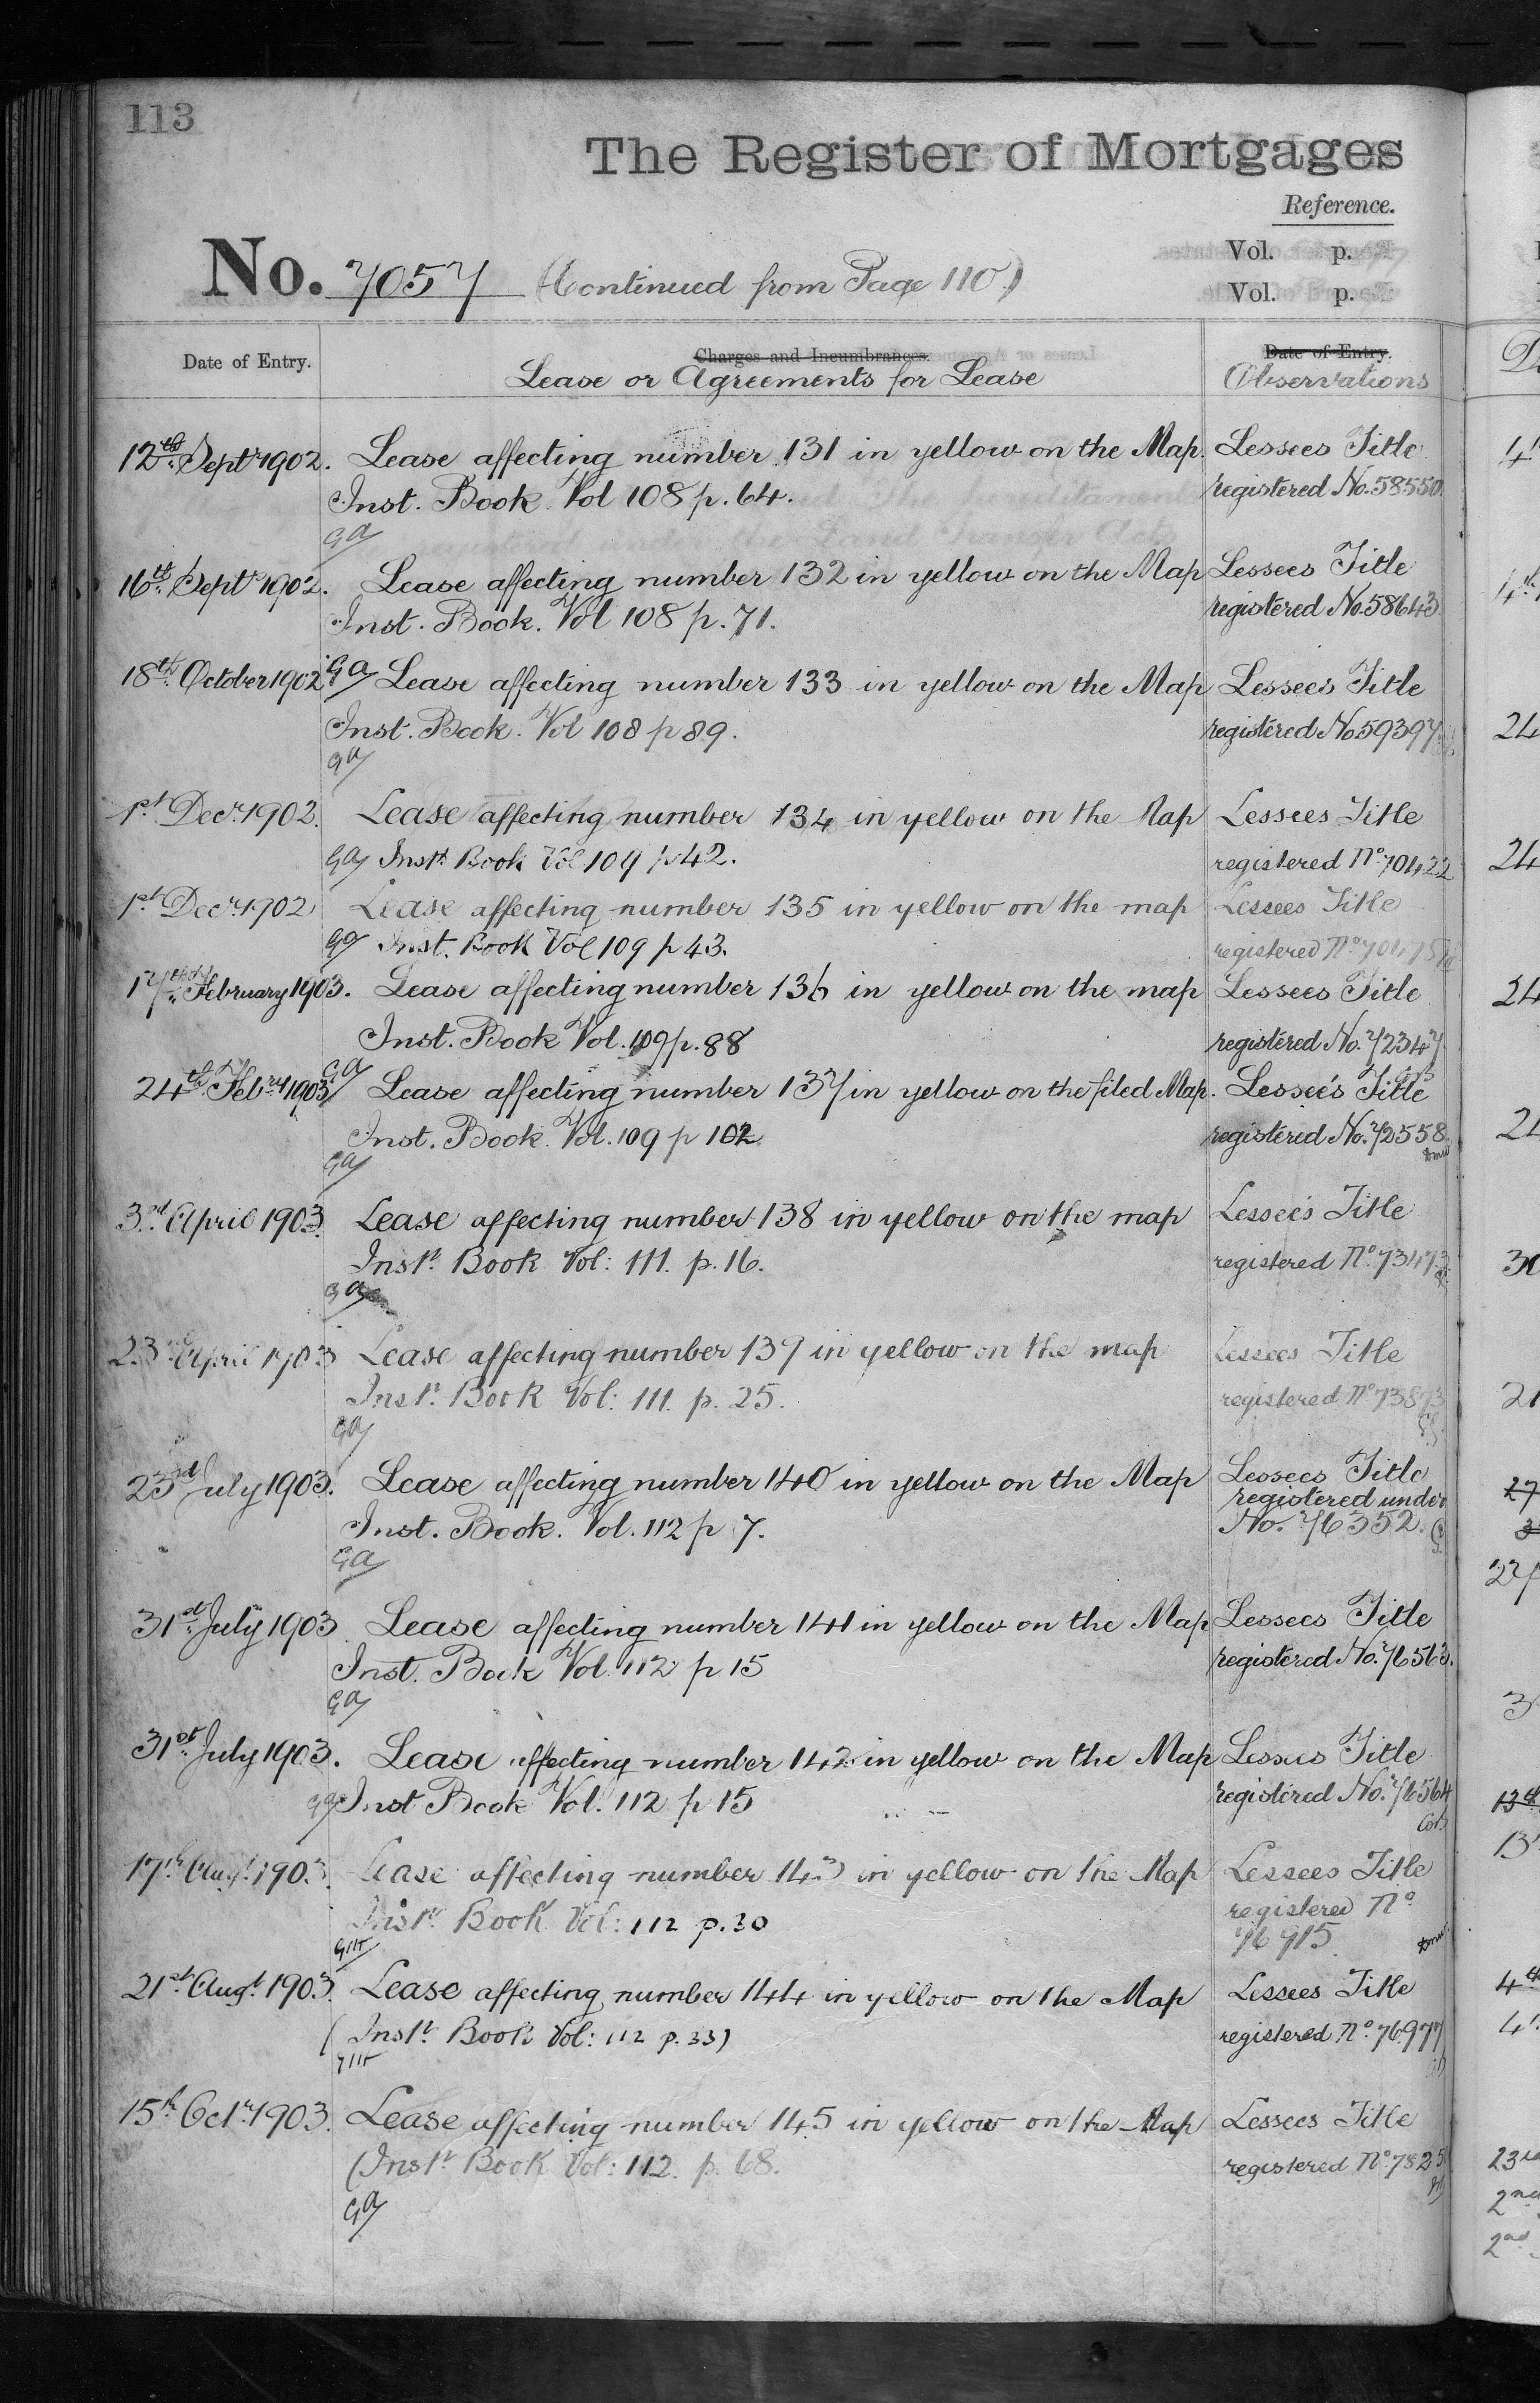 113
The Register of Mortgages
Reference.
Vol. p.
No. 7057 (Continued from Page 110.)
Vol. p.
Date of Entry. Charges and Incumbrances. Date of Entry.
Lease or Agreements for Lease Observations
12th Septr 1902. Lease affecting number 131 in yellow on the Map. Lessees Title
Inst. Book. Vol 108 p. 64. registered No. 58550.
GA
16th Septr 1902. Lease affecting number 132 in yellow on the Map Lessees Title
Inst. Book. Vol 108 p. 71. registered No. 58643.
18th October 1902 GA Lease affecting number 133 in yellow on the Map Lessee's Title
Inst. Book. Vol 108 p 89. registered No 59397
GA
1st Decr. 1902. Lease affecting number 134 in yellow on the Map Lessees Title
GA Instt. Book Vol 109 p 42. registered No. 70422
1st Decr. 1902 Lease affecting number 135 in yellow on the map Lessees Title
GA Inst. Book Vol 109 p 43. registered No.
17th February 1903. Lease affecting number 136 in yellow on the map Lessees Title
Inst. Book Vol. 109 p. 88 registered No. 72347
GA
24th Febry 1903. Lease affecting number 137 in yellow on the filed Map. Lessee's Title
Inst. Book. Vol. 109 p 102 registered No. 72558.
GA
3rd April 1903. Lease affecting number 138 in yellow on the map Lessee's Title
Instt. Book Vol: 111. p. 16. registered No. 73473
GA
23rd April 1903 Lease affecting number 139 in yellow on the map Lessees Title
Instt. Book Vol: 111. p. 25. registered No. 73873
GA
23rd July 1903. Lease affecting number 140 in yellow on the Map Lessees Title
registered under
Inst. Book. Vol. 112 p 7. No. 76352.
GA
31st July 1903 Lease affecting number 141 in yellow on the Map Lessees Title
Inst. Book Vol. 112 p 15 registered No. 76563.
GA
31st July 1903. Lease affecting number 142 in yellow on the Map Lessees Title
GA Inst Book Vol. 112 p 15 registered No. 76564
17th Augt. 1903. Lease affecting number 143 in yellow on the Map Lessees Title
Instt. Book Vol: 112 p. 30 registered No
76915
21st Augt. 1903. Lease affecting number 144 in yellow on the Map Lessees Title
(Instt. Book Vol: 112 p. 33) registered No. 76977
15th Octr. 1903. Lease affecting number 145 in yellow on the Map Lessees Title
(Instt. Book Vol: 112. p. 68. registered No.
GA